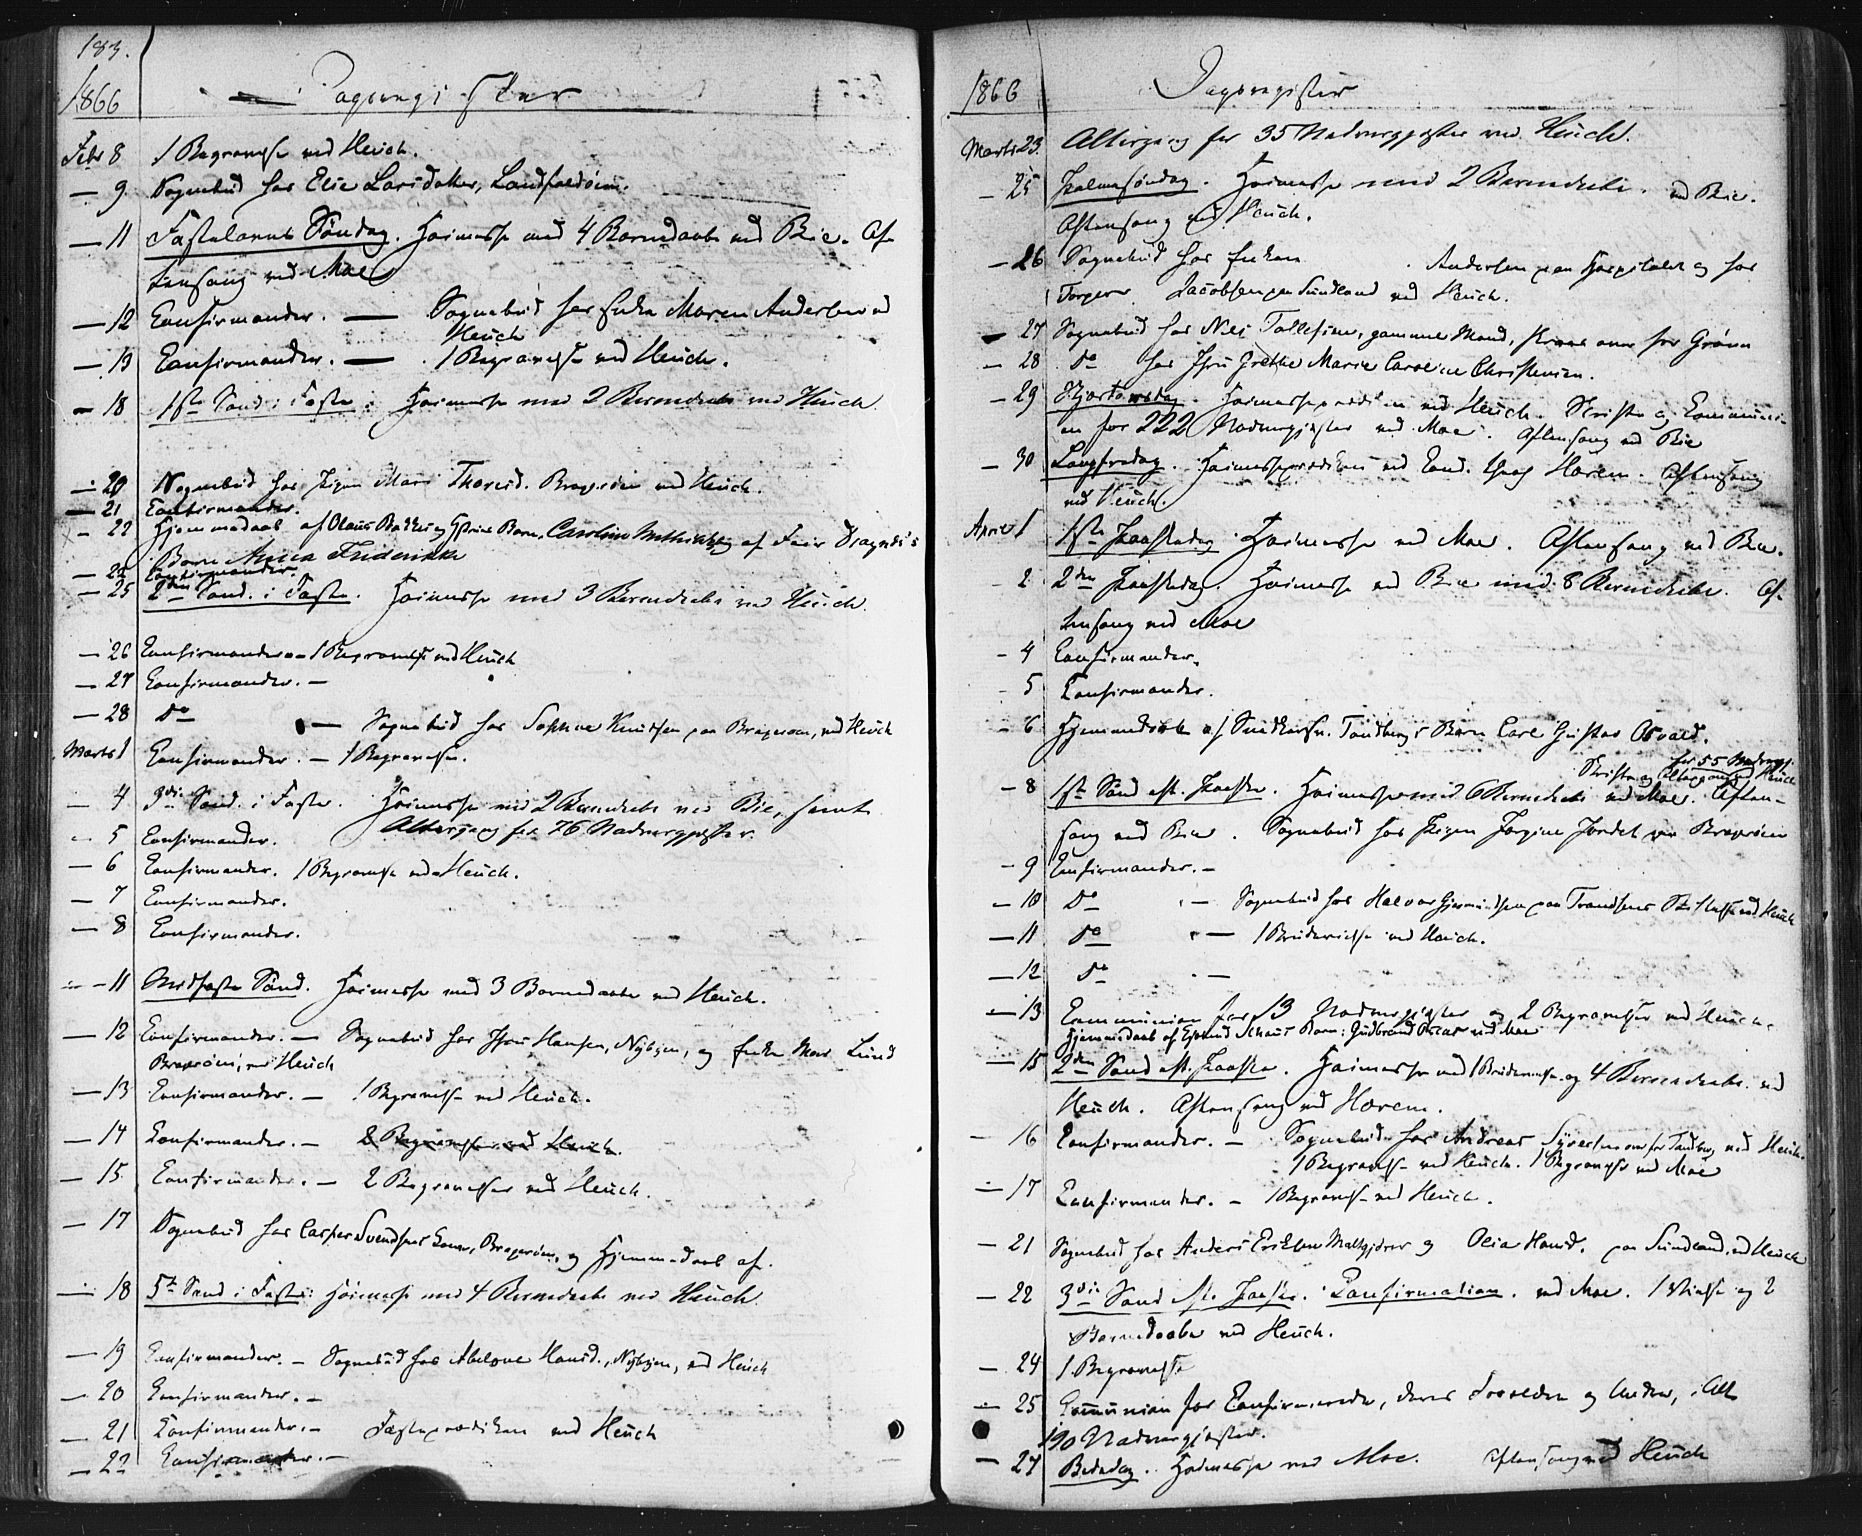 183.
1866 Dagsregister
Febr 8 1 Begravelse ved Heuch.
— 9 Sognebud hos Elie Larsdatter, Landfaldøien.
— 11 Fastelavns Søndag. Høimesse med 4 Barnedaab ved Bie. Af-
tensang ved Moe
— 12 Confirmander. — Sognebud hos Enke Maren Andersen ved
Heuch
— 13 Confirmander. — 1 Begravelse ved Heuch.
— 18 1ste Sønd. i Faste. Høimesse med 2 Barnedaab ved Heuch.
— 20 Sognebud hos Pigen Mari Thorsd. Bragerøen ved Heuch.
— 21 Confirmander.
— 22 Hjemmedaab af Olaus Barn, Caroline Mathilde, og af
Barn Anna Fredrikke
— 22 Confirmander.
— 25 2den Sønd. i Faste. Høimesse med 3 Barnedaab ved Heuch.
— 26 Confirmander — 1 Begravelse ved Heuch
— 27 Confirmander. —
— 28 Do — Sognebud hos Sophie Knudsen paa Bragerøen, ved Heuch
Marts 1 Confirmander. — 1 Begravelse.
— 4 3die Sønd. i Faste. Høimesse med 2 Barnedaab ved Bie, samt
Altergang for 76 Nadvergjester.
— 5 Confirmander.
— 6 Confirmander. 1 Begravelse ved Heuch.
— 7 Confirmander.
— 8 Confirmander.
— 11 Midfaste Sønd. Høimesse med 3 Barnedaab ved Heuch.
— 12 Confirmander. — Sognebud hos Hansen, Nybyen, og Enke Lund
Bragerøen, ved Heuch
— 13 Confirmander. — 1 Begravelse ved Heuch.
— 14 Confirmander. — 2 Begravelser ved Heuch.
— 15 Confirmander. — 2 Begravelser ved Heuch.
— 17 Sognebud hos Casper Svendsens Kone, Bragerøen, og Hjemmedaab af.
— 18 5te Sønd i Faste. Høimesse med 4 Barnedaab ved Heuch.
— 19 Confirmander. — Sognebud hos Abelone Hansd., Nybyen, ved Heuch
— 20 Confirmander. —
— 21 Confirmander. — Fasteprædiken ved Heuch
— 22 Confirmander. —
1866 Dagsregister
Marts 23 Altergang for 35 Nadvergjester ved Heuch.
— 25 Palmesøndag. Høimesse med 2 Barnedaab. ved Bie.
Aftensang ved Heuch.
— 26 Sognebud hos Enken Andersen paa Hospitalet og hos
Jacobsen paa Sundland ved Heuch.
— 27 Sognebud hos Nils Tollefsen, gammel Mand,
— 28 Do hos Grethe Marie Caroline Christensen.
— 29 Skjærtorsdag. Høimesseprædiken ved Heuch. Skrifte og Communi-
on for 222 Nadvergjester ved Moe. Aftensang ved Bie
— 30 Langfredag. Høimesseprædiken ved Cand. theol Horem. Aftensang
ved Heuch.
April 1 1ste Paaskedag Høimesse ved Moe. Aftensang ved Bie.
— 2 2den Paaskedag. Høimesse ved Bie med 8 Barnedaab. Af-
tensang ved Moe
— 4 Confirmander.
— 5 Confirmander.
— 6 Hjemmedaab af Tandbergs Barn Carl Gustav Osvald.
for 55 Nadvergj.
Skrifte og Altergang ved Heuch
— 8 1ste Sønd eft. Paaske. Høimesse med 6 Barnedaab ved Moe. Aften-
sang ved Bie. Sognebud hos Pigen Jørgine Jordet paa Bragerøen
— 9 Confirmander. —
— 10 Do — Sognebud hos Halvor Gjermundsen paa ved Heuch
— 11 Do — 1 Brudevielse ved Heuch.
— 12 Do —
— 13 Communion for 13 Nadvergjester og 2 Begravelser ved Heuch.
Hjemmedaab af Barn: Gudbrand Oscar ved Moe
— 15 2den Sønd eft. Paaske. Høimesse med 1 Brudevielse og 4 Barnedaab. ved
Heuch. Aftensang ved Horem.
— 16 Confirmander. — Sognebud hos Andreas Syversen ved Heuch.
1 Begravelse ved Heuch. 1 Begravelse ved Moe
— 17 Confirmander. — 1 Begravelse ved Heuch.
— 21 Sognebud hos Anders Eriksen og Olia Hansd. paa Sundland, ved Heuch
— 22 3die Sønd eft. Paaske. Confirmation. ved Moe. 1 Vielse og 2
Barnedaab ved Heuch.
— 24 1 Begravelse
— 25 Communion for Confirmerede, deres Forældre og Andre, i Alt
190 Nadvergjester.
— 27 Bededag. Høimesse ved Moe. Aftensang ved Heuch